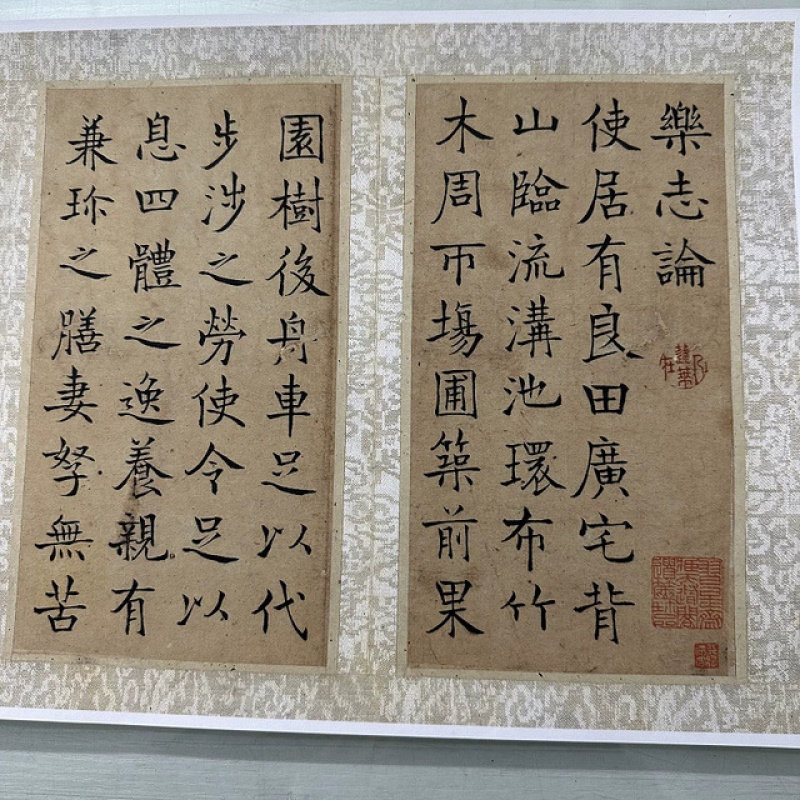 樂志論
使居有良田廣宅背
山臨流溝池環布竹
木周帀塲圃築前果
園樹後舟車足以代
步涉之勞使令足以
息四體之逸養親有
兼珎之膳妻孥無苦